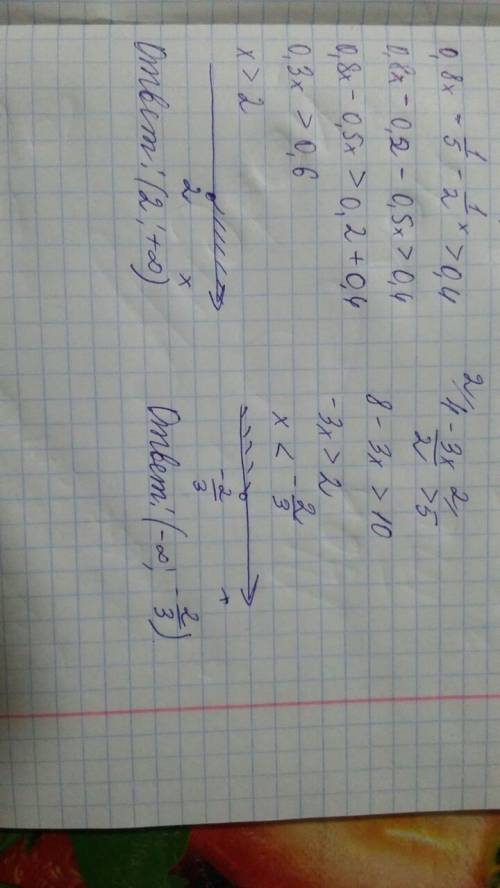 0,8x - 1/5 - 1/2 x > 0,4
0,8x - 0,2 - 0,5x > 0,4
0,8x - 0,5x > 0,2 + 0,4
0,3x > 0,6
x > 2
2 x
Ответ: (2; +∞)
2/ 4 - 3x/2 > 5 2/
8 - 3x > 10
-3x > 2
x < -2/3
-2/3 x
Ответ: (-∞; -2/3)